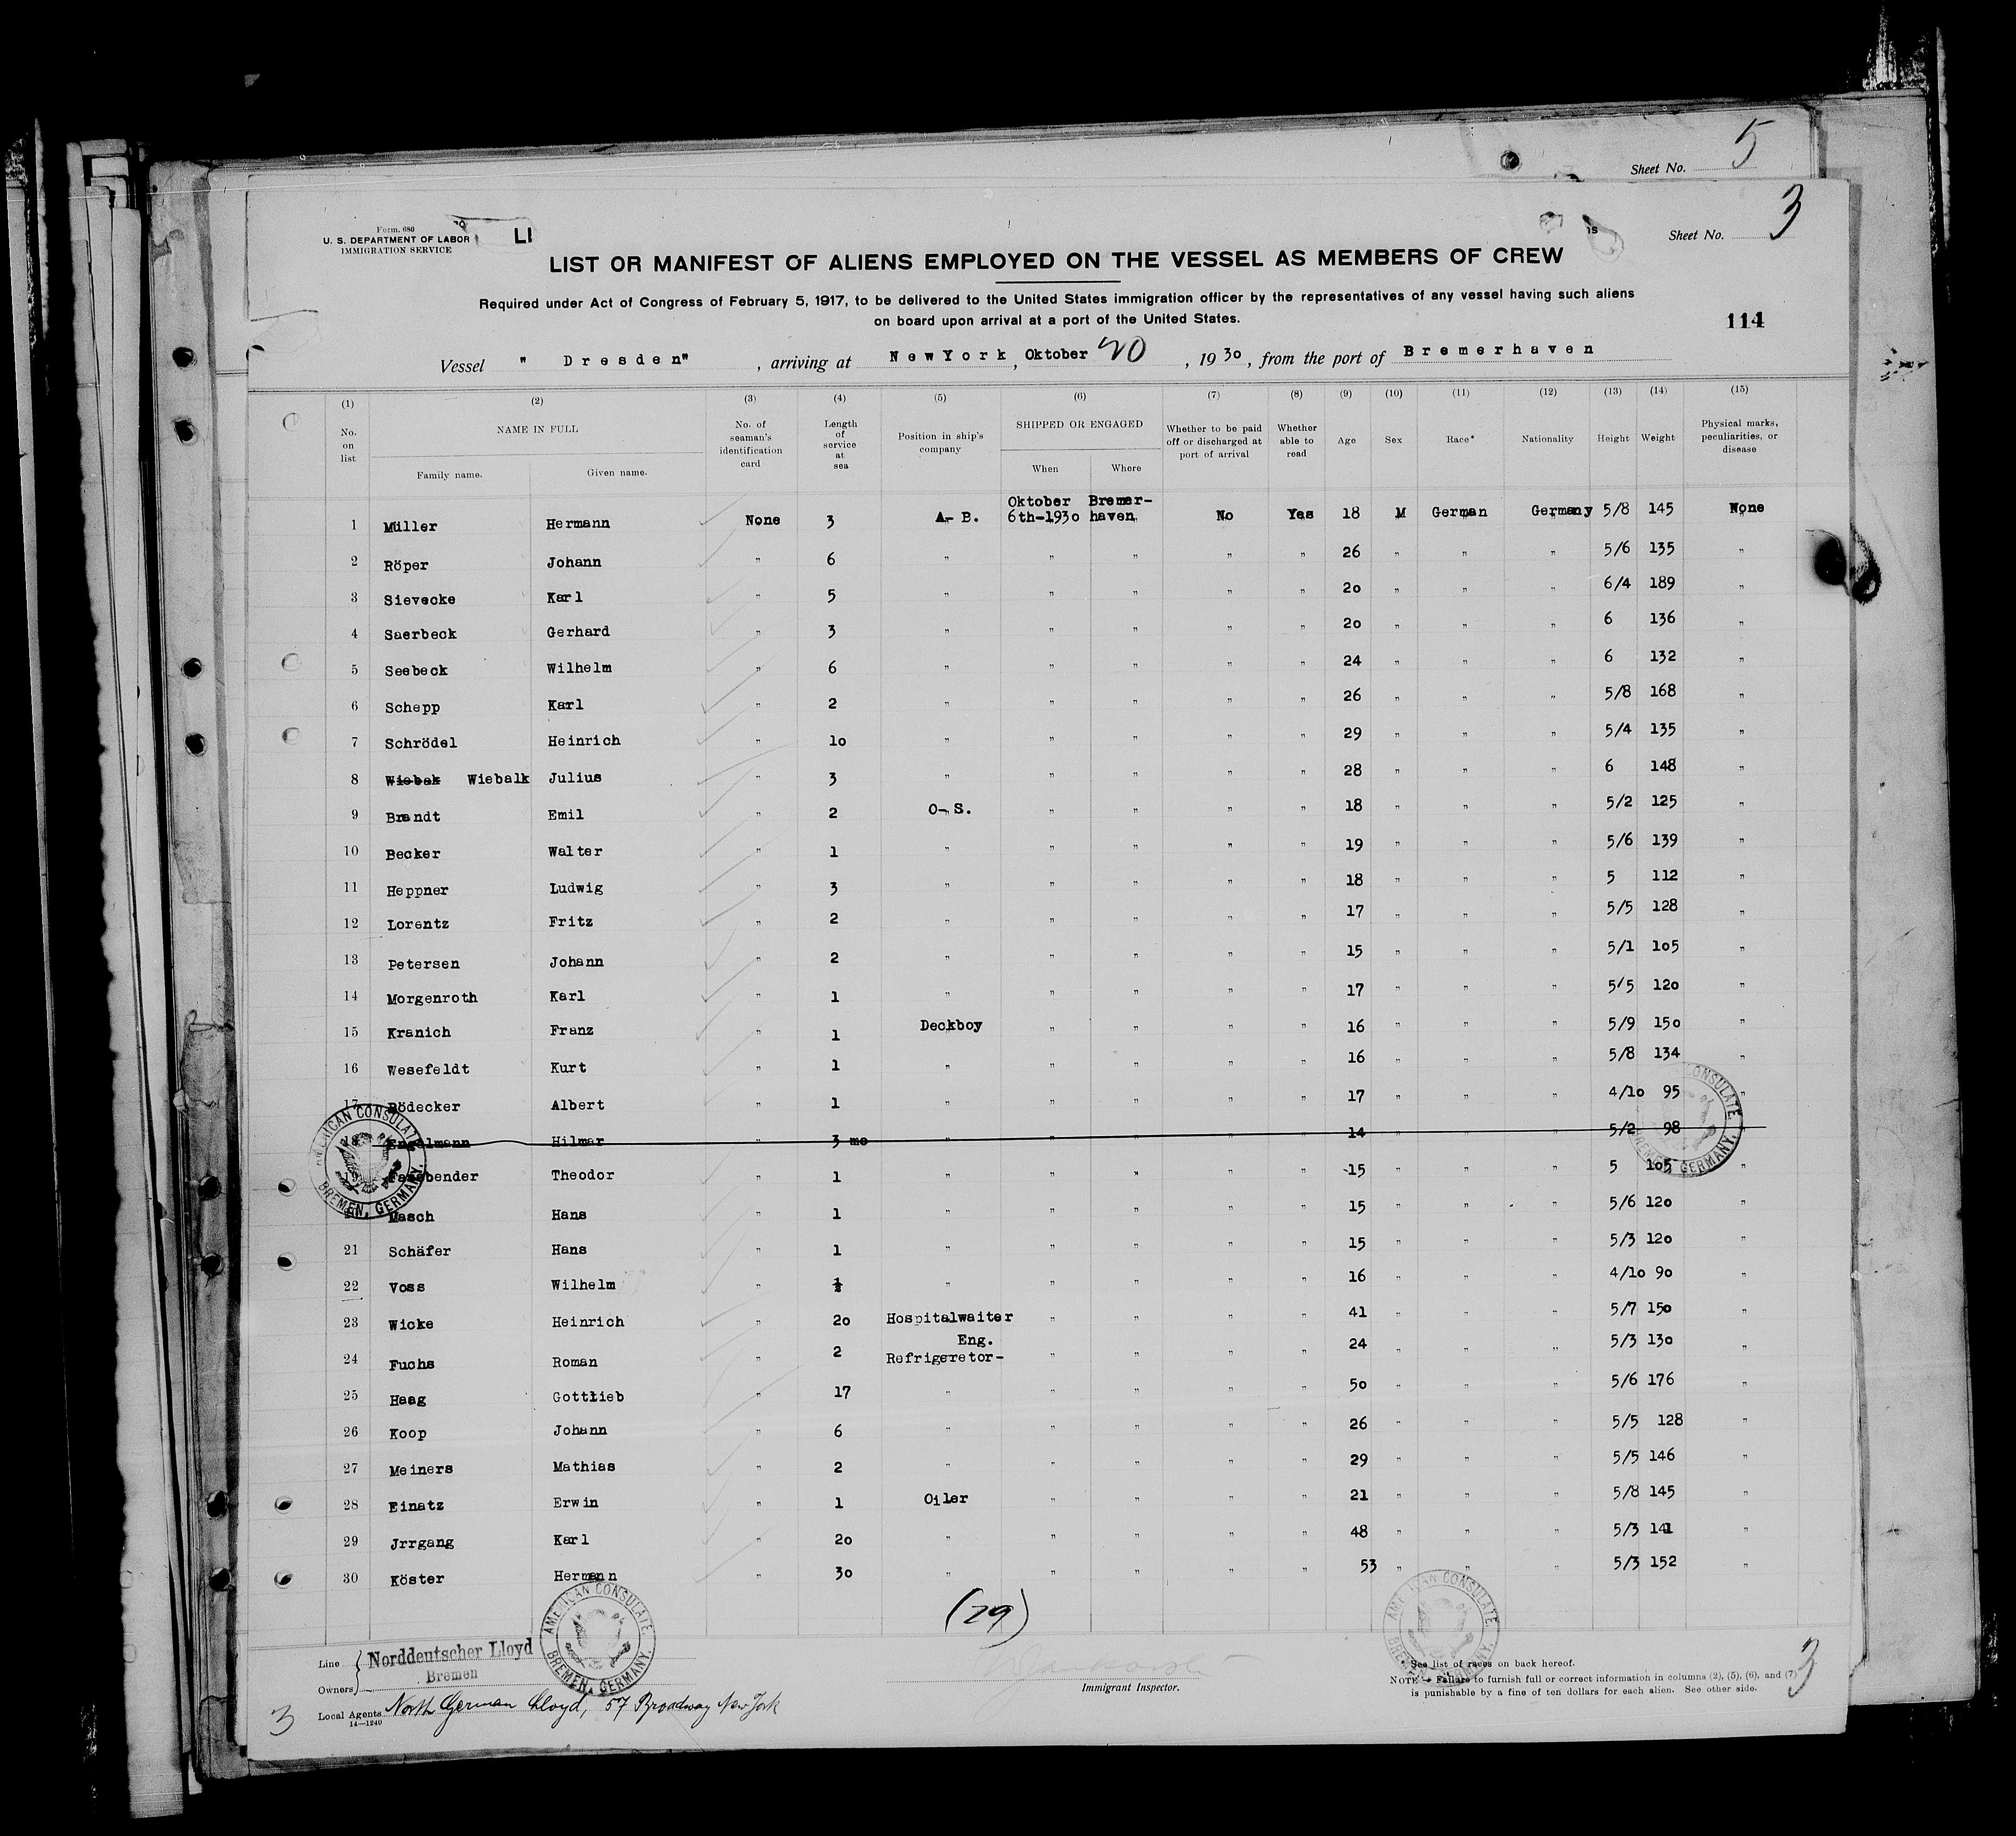 Sheet No. 5
Form. 680
U. S. DEPARTMENT OF LABOR
IMMIGRATION SERVICE
LI
Sheet No. 3
LIST OR MANIFEST OF ALIENS EMPLOYED ON THE VESSEL AS MEMBERS OF CREW
Required under Act of Congress of February 5, 1917, to be delivered to the United States immigration officer by the representatives of any vessel having such aliens
on board upon arrival at a port of the United States.
114
Vessel " Dresden" , arriving at NewYork , Oktober 20 , 19 30 , from the port of Bremerhaven
(1) (2) (3) (4) (5) (6) (7) (8) (9) (10) (11) (12) (13) (14) (15)
No. on list NAME IN FULL Family name. Given name. No. of seaman's identification card Length of service at sea Position in ship's company SHIPPED OR ENGAGED When Where Whether to be paid off or discharged at port of arrival Whether able to read Age Sex Race* Nationality Height Weight Physical marks, peculiarities, or disease
1 Müller Hermann None 3 A- B. Oktober 6th-1930 Bremer-haven No Yes 18 M German Germany 5/8 145 None
2 Röper Johann " 6 " " " " " 26 " " " 5/6 135 "
3 Sievecke Karl " 5 " " " " " 20 " " " 6/4 189 "
4 Saerbeck Gerhard " 3 " " " " " 20 " " " 6 136 "
5 Seebeck Wilhelm " 6 " " " " " 24 " " " 6 132 "
6 Schepp Karl " 2 " " " " " 26 " " " 5/8 168 "
7 Schrödel Heinrich " 10 " " " " " 29 " " " 5/4 135 "
8 Wiebak Wiebalk Julius " 3 " " " " " 28 " " " 6 148 "
9 Brandt Emil " 2 O- S. " " " " 18 " " " 5/2 125 "
10 Becker Walter " 1 " " " " " 19 " " " 5/6 139 "
11 Heppner Ludwig " 3 " " " " " 18 " " " 5 112 "
12 Lorentz Fritz " 2 " " " " " 17 " " " 5/5 128 "
13 Petersen Johann " 2 " " " " " 15 " " " 5/1 105 "
14 Morgenroth Karl " 1 " " " " " 17 " " " 5/5 120 "
15 Kranich Franz " 1 Deckboy " " " " 16 " " " 5/9 150 "
16 Wesefeldt Kurt " 1 " " " " " 16 " " " 5/8 134 "
17 Bödecker Albert " 1 " " " " " 17 " " " 4/10 95 "
18 Engelmann Hilmar " 3 mo " " " " " 14 " " " 5/2 98
19 Fassbender Theodor " 1 " " " " " 15 " " " 5 105 "
Masch Hans " 1 " " " " " 15 " " " 5/6 120 "
21 Schäfer Hans " 1 " " " " " 15 " " " 5/3 120 "
22 Voss Wilhelm " ½ " " " " " 16 " " " 4/10 90 "
23 Wicke Heinrich " 20 Hospitalwaiter " " " " 41 " " " 5/7 150 "
24 Fuchs Roman " 2 Eng. Refrigeretor- " " " " 24 " " " 5/3 130 "
25 Haag Gottlieb " 17 " " " " " 50 " " " 5/6 176 "
26 Koop Johann " 6 " " " " " 26 " " " 5/5 128 "
27 Meiners Mathias " 2 " " " " " 29 " " " 5/5 146 "
28 Einatz Erwin " 1 Oiler " " " " 21 " " " 5/8 145 "
29 Jrrgang Karl " 20 " " " " " 48 " " " 5/3 141 "
30 Köster Hermann " 30 " " " " " 53 " " " 5/3 152 "
AMERICAN CONSULATE. BREMEN, GERMANY.
AMERICAN CONSULATE. BREMEN, GERMANY.
AMERICAN CONSULATE. BREMEN, GERMANY.
AMERICAN CONSULATE. BREMEN, GERMANY.
(29)
Line Norddeutscher Lloyd
Bremen
Owners
Local Agents North German Lloyd, 57 Broadway New York
14—1240
Immigrant Inspector.
* See list of races on back hereof.
NOTE.—Failure to furnish full or correct information in columns (2), (5), (6), and (7)
is punishable by a fine of ten dollars for each alien. See other side.
3
3